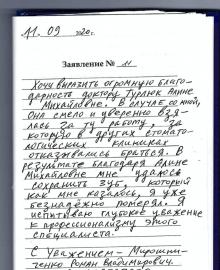 11.09 2020г.
Заявление № 11
Хочу выразить огромную благо-
дарность доктору Турлюк Алине
Михайловне. В случае со мной,
она смело и уверенно взя-
лась за ту работу, за
которую в других стомато-
логических клиниках
отказывались браться. В
результате благодаря Алине
Михайловне мне удалось
сохранить зуб, который
как мне казалось, я уже
безнадёжно потерял. Я
испытываю глубокое уважение
к профессионализму этого
специалиста.
С Уважением – Мирошни-
ченко Роман Владимирович.